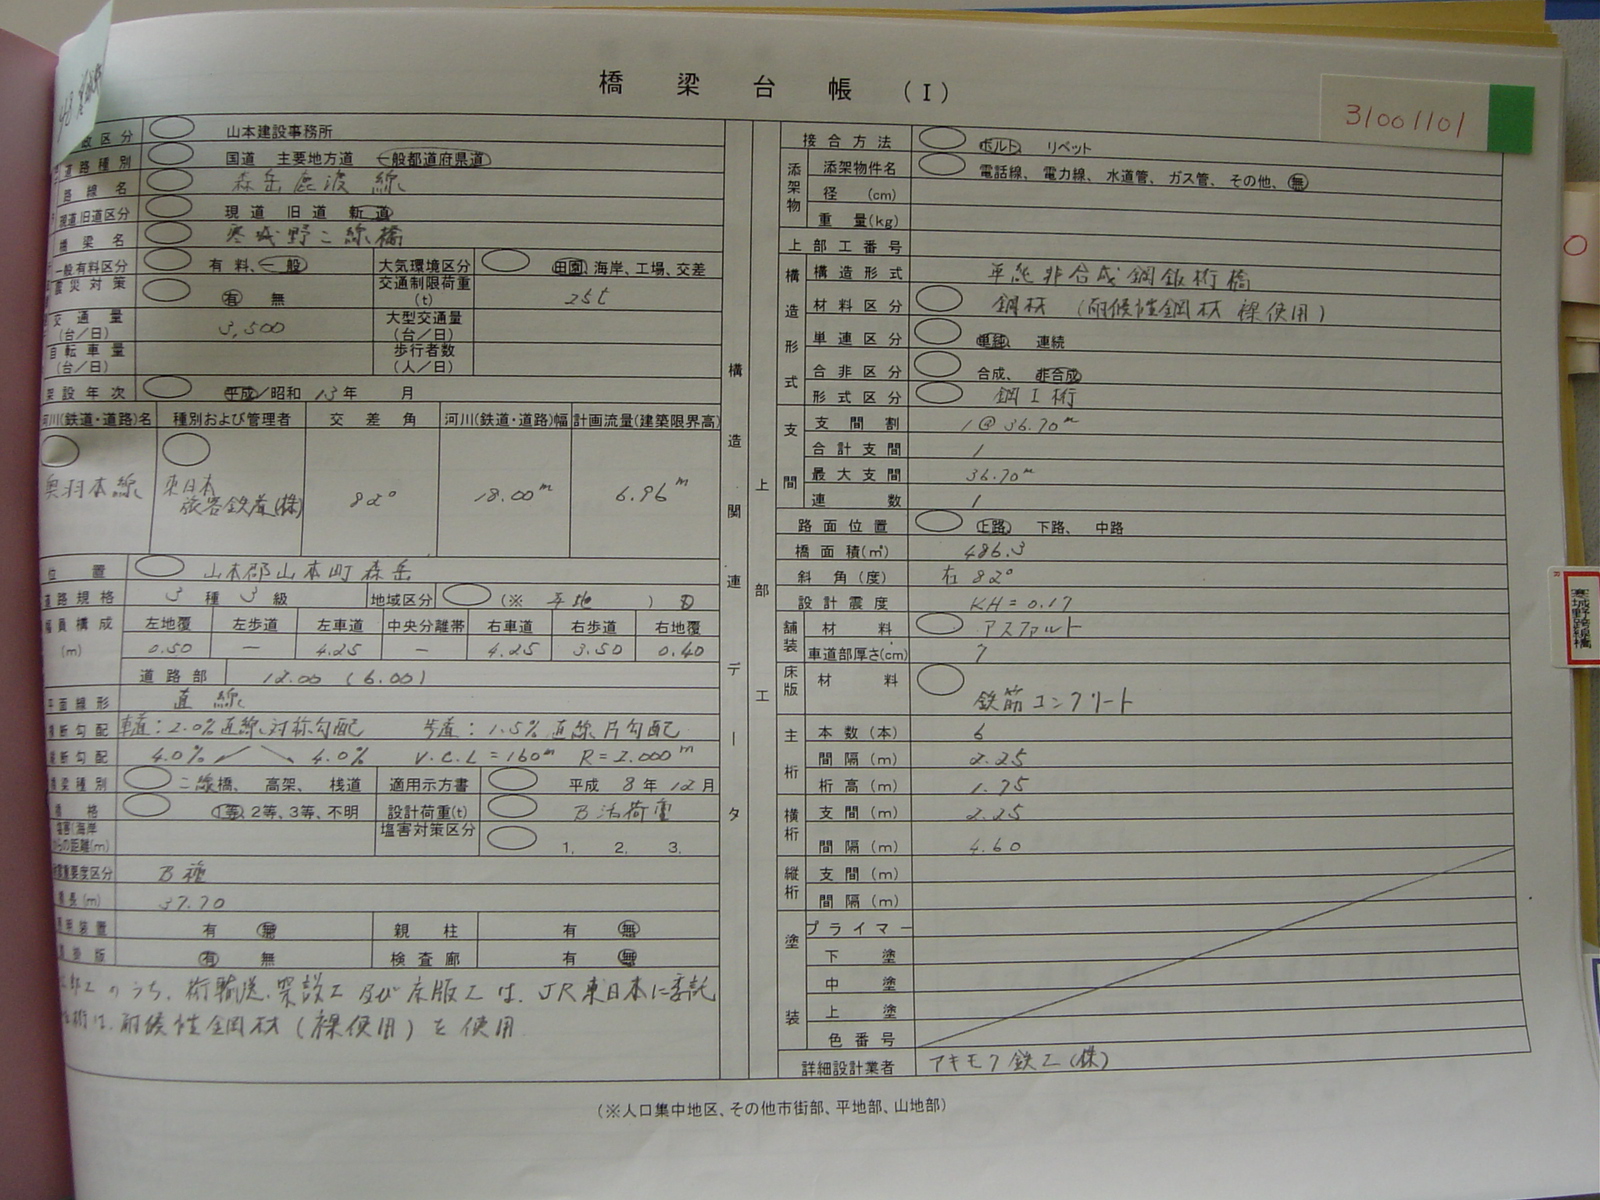 橋梁台帳(I)
31001101
政区分 山本建設事務所
道路種別 国道 主要地方道 一般都道府県道
路線名 森岳鹿渡線
現道旧道区分 現道 旧道 新道
橋梁名 寒城野こ線橋
一般有料区分 有料、一般 大気環境区分 田園、海岸、工場、交差
震災対策 有 無 交通制限荷重(t) 25t
交通量(台/日) 3,500 大型交通量(台/日)
自転車量(台/日) 歩行者数(人/日)
架設年次 平成/昭和 13年 月
河川(鉄道・道路)名 種別および管理者 交差角 河川(鉄道・道路)幅 計画流量(建築限界高)
奥羽本線 東日本旅客鉄道(株) 82° 18.00m 6.96m
位置 山本郡山本町森岳
道路規格 3種3級 地域区分 (※ 平地 )
幅員構成(m) 左地覆 左歩道 左車道 中央分離帯 右車道 右歩道 右地覆
0.50 — 4.25 — 4.25 3.50 0.40
道路部 12.00 (6.00)
平面線形 直線
横断勾配 車道:2.0%直線対称勾配 歩道:1.5%直線片勾配
縦断勾配 4.0% 4.0% V.C.L=160m R=2.000m
橋梁種別 こ線橋、高架、桟道 適用示方書 平成 8年12月
橋格 1等、2等、3等、不明 設計荷重(t) B活荷重
塩害(海岸からの距離(m) 塩害対策区分 1. 2. 3.
重要度区分 B種
橋長(m) 37.70
装置 有 無 親柱 有 無
掛版 有 無 検査廊 有 無
部工のうち、桁輸送、架設工及び床版工は、JR東日本に委託
桁は、耐候性鋼材(裸使用)を使用
構造関連データ
上部工
接合方法 ボルト リベット
添架物 添架物件名 電話線、電力線、水道管、ガス管、その他、無
径 (cm)
重量(kg)
上部工番号
構造形式 構造形式 単純非合成鋼鈑桁橋
材料区分 鋼材 (耐候性鋼材 裸使用)
単連区分 単純 連続
合非区分 合成、非合成
形式区分 鋼I桁
支間 支間割 1@36.70m
合計支間 1
最大支間 36.70m
連数 1
路面位置 上路、下路、中路
橋面積(㎡) 486.3
斜角(度) 右82°
設計震度 KH=0.17
舗装 材料 アスファルト
車道部厚さ(cm) 7
床版 材料 鉄筋コンクリート
主桁 本数(本) 6
間隔(m) 2.25
桁高(m) 1.75
横桁 支間(m) 2.25
間隔(m) 4.60
縦桁 支間(m)
間隔(m)
塗装 プライマー
下塗
中塗
上塗
色番号
詳細設計業者 アキモク鉄工(株)
(※人口集中地区、その他市街部、平地部、山地部)
寒城野跨線橋